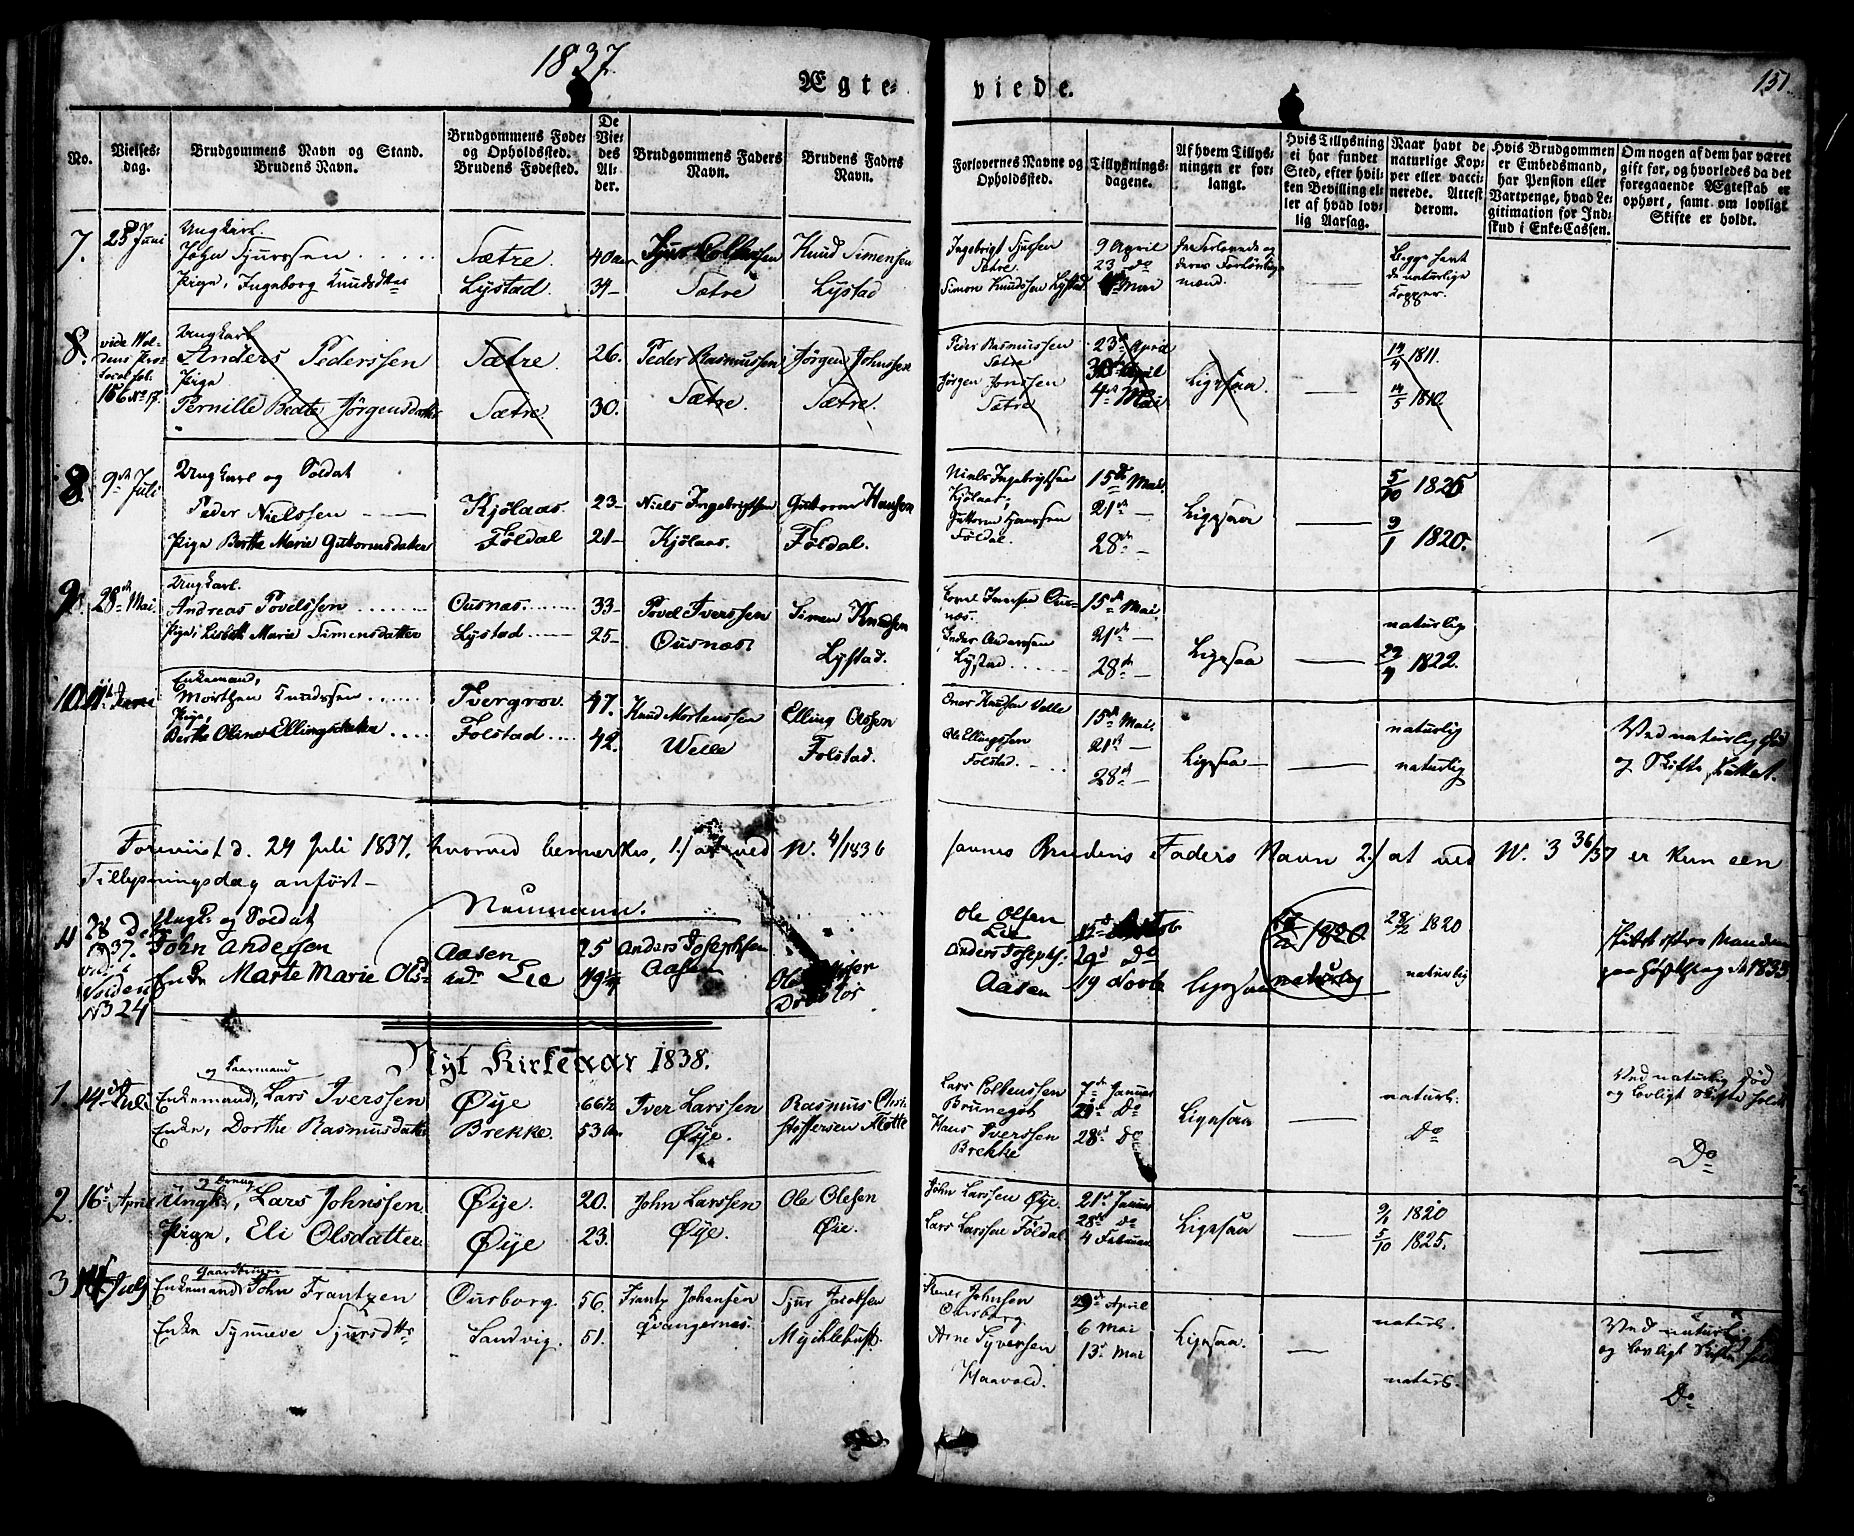 1837
Ægte-
viede.
151.
No.
Vielses-
dag.
Brudgommens Navn og Stand.
Brudens Navn.
Brudgommens Føde-
og Opholdssted.
Brudens Fødested.
De
Vie-
des
Al-
der.
Brudgommens Faders
Navn.
Brudens Faders
Navn.
Forlovernes Navne og
Opholdssted.
Tillysnings-
dagene.
Af hvem Tillys-
ningen er for-
langt.
Hvis Tillysning
ei har fundet
Sted, efter hvil-
ken Bevilling el-
ler af hvad lov-
lig Aarsag.
Naar havt de
naturlige Kop-
per eller vacci-
nerede. Attest
derom.
Hvis Brudgommen
er Embedsmand,
har Pension eller
Vartpenge, hvad Le-
gitimation for Ind-
skud i Enke-Cassen.
Om nogen af dem har været
gift før, og hvorledes da det
foregaaende Ægteskab er
ophørt, samt om lovligt
Skifte er holdt.
7. 25 Juni
Ungkarl.
John Sjurssen
Pige, Ingeborg Knudsdtr
Sætre.
Lystad.
40
34
Sætre
Knud Simensen
Lystad
Ingebrigt Sjurssen
Sætre.
Simon Knudssen Lystad.
9 April
23 do
Mai
Begge havt
de naturlige
Kopper.
8. vide Vol-
dens Pro-
tocol fol.
156 No 17.
Ungkarl
Anders Pederssen
Pige
Pernille Beate Jørgensdatter
Sætre.
Sætre.
26.
30.
Peder Rasmussen
Sætre.
Jørgen Johnssen
Sætre.
Peder Rasmussen
Sætre
Jørgen Jonssen
Sætre
23 April
30 April
4 Mai
Ligesaa.
14/4 1811.
14/5 1810.
8. 9 Juli
Ungkarl og Soldat
Peder Nielssen
Pige Berthe Marie Guttormsdatter
Kjølaas
Føldal
23
21
Niels Ingebrigtsen
Kjølaas.
Guttorm Hanssen
Føldal.
Niels Ingebrigtsen
Kjølaas,
Guttorm Hanssen
Føldal.
15 Mai.
21
28
Ligesaa
5/10 1825
9/1 1820.
9. 28 Mai.
Ungkarl.
Andreas Povelssen
Pige, Lisbeth Marie Simensdatter
Ousnæs.
Lystad
33
25
Povel Iverssen
Ousnæs
Simen Knudsen
Lystad.
Ous-
næs.
Peder Anderssen
Lystad
15 Mai.
21
28
Ligesaa
naturlig
1822.
10. 11 Juni
Enkemand,
Morthen Knudssen
Pige,
Berthe Oline Ellingsdatter
Tvergrov
Folstad
47.
42.
Knud Mortenssen
Welle
Elling Olssen
Folstad.
Knudsen Velle
Ole Ellingssen
Folstad.
15 Mai.
21
28
Ligesaa
naturlig
naturlig
Ved naturlig Død
og Skifte sluttet.
Foreviist d. 24 Juli 1837, hvorved bemerkes, 1.) at ved N. 4/1836 savnes Brudens Faders Navn 2.) at ved N. 3 36/37 er kun een
Tillysningsdag anført
Neumann.
11 28 Decbr
1837.
vide
Volden
N 324
Ungk. og Soldat
John Andersen
Enke Marte Marie Olsd
Aasen
Lie
25
49½
Anders Josephsen
Aasen
Ole Olsen
Lie
Anders Josephs:
Aasen
15 Octob
29 Do
19 Novb
Ligesaa
1820
naturlig
28/2 1820
naturlig
Nyt Kirkeaar 1838.
1. 14 Juli
og Kaarmand
Enkemand, Lars Iverssen
Enke, Dorthe Rasmusdatter
Øye
Brekke.
66½
53
Iver Larssen
Øye.
Rasmus Chri-
stoffersen Flotte
Lars Colbenssen
Brunegot
Hans Iverssen
Brekke
7 Januar
21 Do
28 Do
Ligesaa
naturl.
Do
Ved naturlig Død
og lovligt Skifte holdt
Do
2. 16 April
Ungk, Lars Johnssen
Pige, Eli Olsdatter
Øye.
Øye
20.
23.
John Larssen
Øye.
Ole Olesen
Øie.
John Larssen Øye.
Lars Larssen Føldal
21 Januar
28 Do
4 Februar
Ligesaa
9/1 1820
5/10 1825.
3. 14 July
Gaardbruger
Enkemand, John Frantzen
Enke Synneve Sjursdtr
Ousborg.
Sandvig.
56.
51.
Frantz Johansen
Qvangernes.
Sjur Jacobsen
Mycklebust.
Johnsen
Ousborg
Arne Syversen
Haavold.
29 April
6 Mai
13 Mai
Ligesaa.
naturl.
naturl.
Ved naturlig
og lovligt Skifte
Do